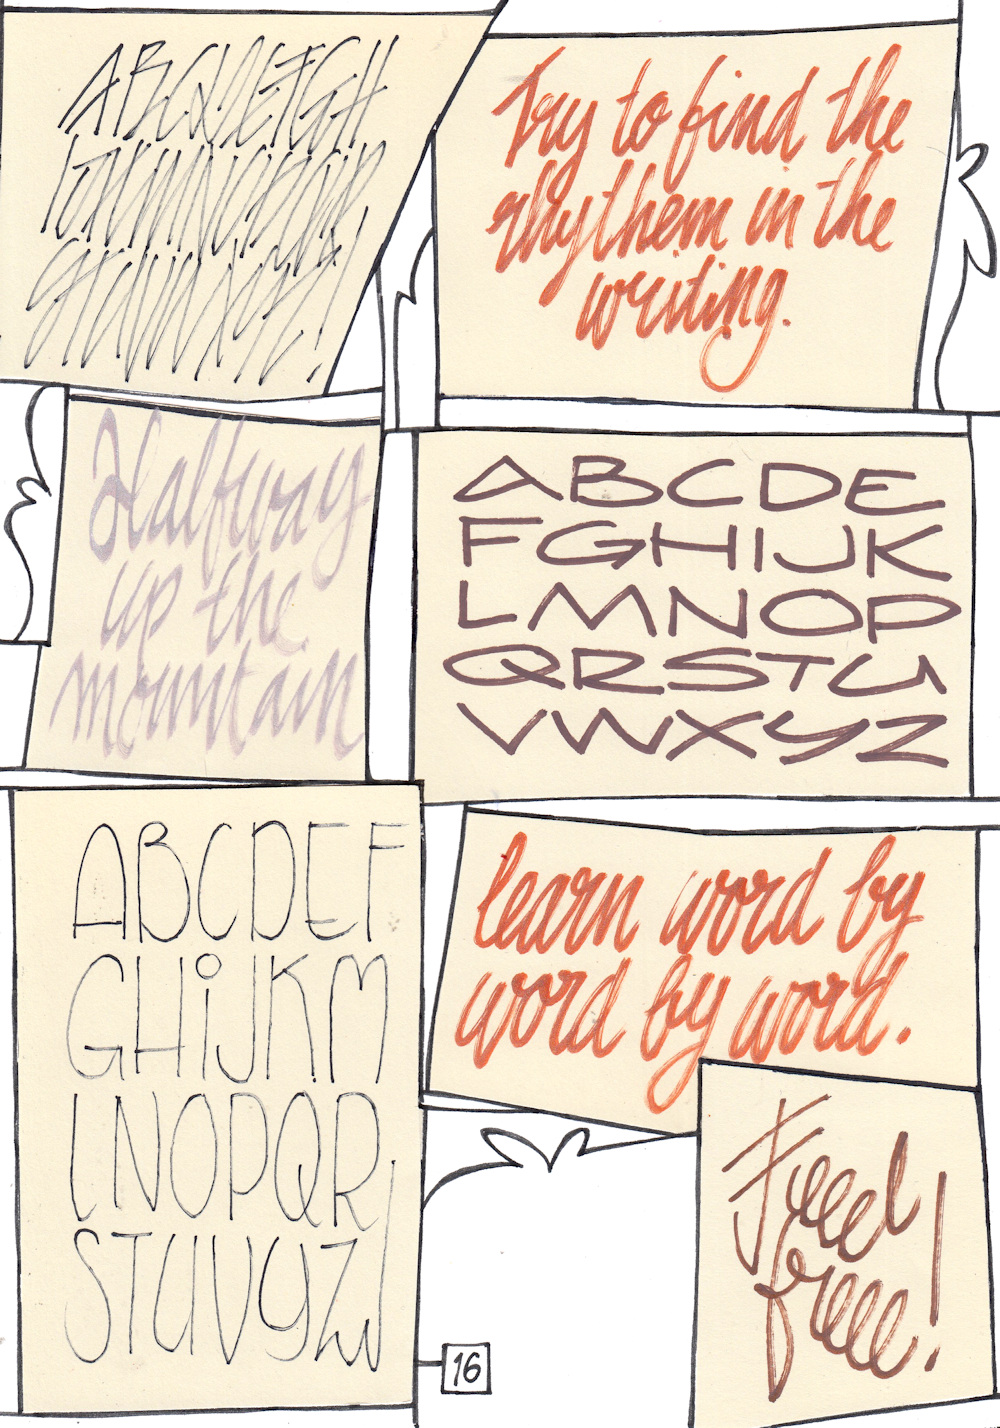 ABCDEFGH
IJKLMNOPQR
STUVWXYZ!
Try to find the
rhythem in the
writing.
Halfway
up the
mountain
ABCDE
FGHIJK
LMNOP
QRSTU
VWXYZ
ABCDEF
GHiJKM
LNOPQR
STUVYZ
learn word by
word by word.
Feel
free!
16